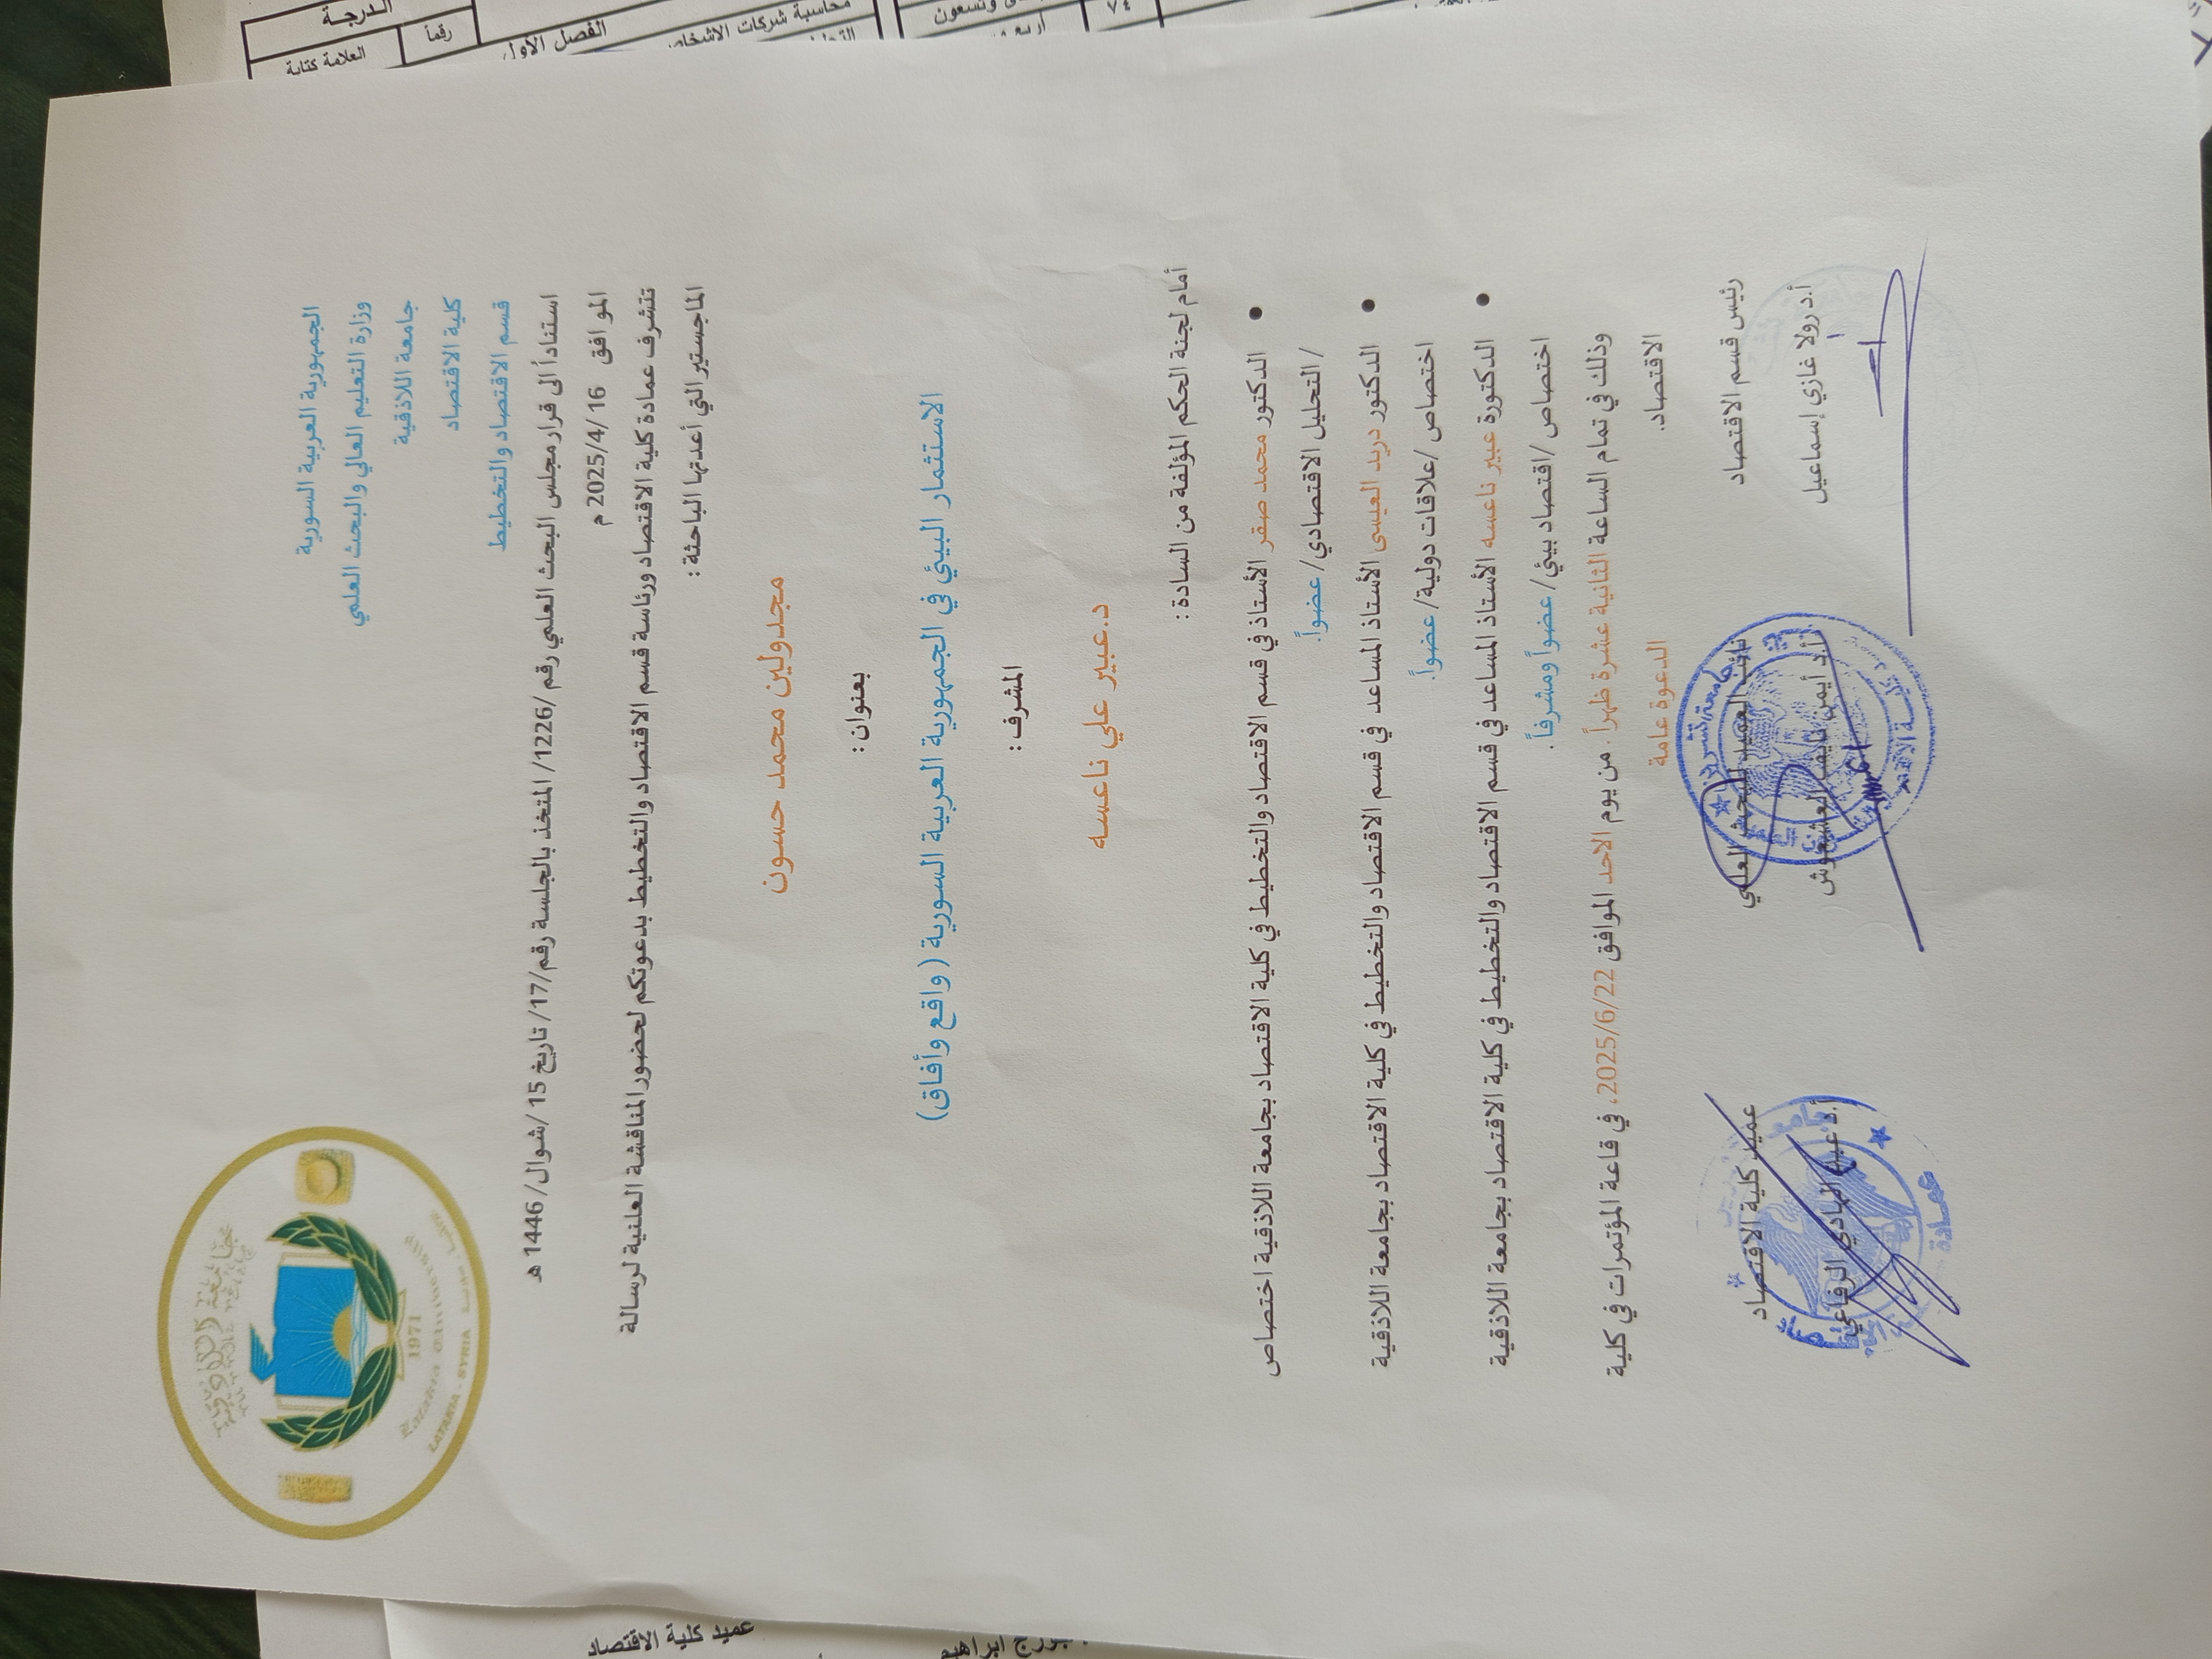 الدرجة
رقماً
العلامة كتابة
الفصل الأول
محاسبة شركات الاشخاص
وتسعون
٧٤
الجمهورية العربية السورية
وزارة التعليم العالي والبحث العلمي
جامعة اللاذقية
كلية الاقتصاد
قسم الاقتصاد والتخطيط
جامعة اللاذقية
1971
LATAKIA - SYRIA
استناداً الى قرار مجلس البحث العلمي رقم /1226/ المتخذ بالجلسة رقم/17/ تاريخ 15 /شوال/ 1446 ه
الموافق 16 /2025/4 م
تتشرف عمادة كلية الاقتصاد ورئاسة قسم الاقتصاد والتخطيط بدعوتكم لحضور المناقشة العلنية لرسالة
الماجستير التي أعدتها الباحثة :
مجدولين محمد حسون
بعنوان :
الاستثمار البيئي في الجمهورية العربية السورية (واقع وأفاق)
المشرف :
د.عبير علي ناعسه
أمام لجنة الحكم المؤلفة من السادة :
• الدكتور محمد صقر الأستاذ في قسم الاقتصاد والتخطيط في كلية الاقتصاد بجامعة اللاذقية اختصاص
/ التحليل الاقتصادي/ عضواً.
• الدكتور دريد العيسى الأستاذ المساعد في قسم الاقتصاد والتخطيط في كلية الاقتصاد بجامعة اللاذقية
اختصاص /علاقات دولية/ عضواً.
• الدكتورة عبير ناعسه الأستاذ المساعد في قسم الاقتصاد والتخطيط في كلية الاقتصاد بجامعة اللاذقية
اختصاص /اقتصاد بيئي/ عضواً ومشرفاً.
وذلك في تمام الساعة الثانية عشرة ظهراً. من يوم الاحد الموافق 2025/6/22، في قاعة المؤتمرات في كلية
الاقتصاد.
الدعوة عامة
رئيس قسم الاقتصاد
نائب العميد للبحث العلمي
عميد كلية الاقتصاد
أ.د رولا غازي إسماعيل
أ.د أيمن نايف العشعوش
أ.د عبد الهادي الرفاعي
جامعة تشرين
عمادة
عميد كلية الاقتصاد